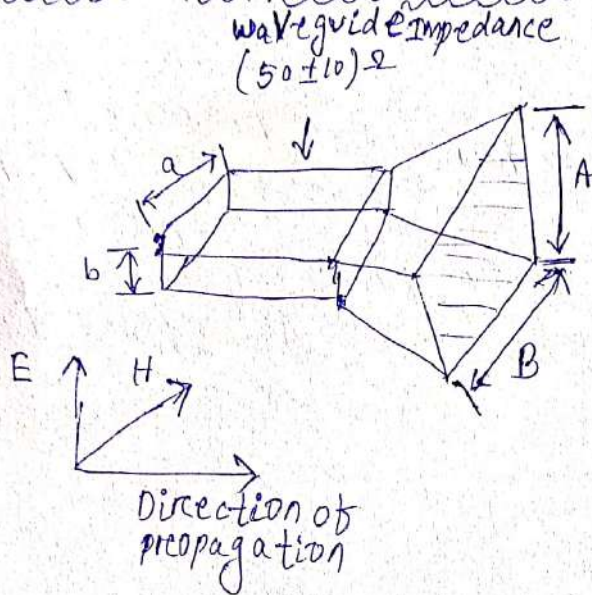 waveguide Impedance
(50±10)Ω
a
A
b
B
E
H
Direction of
propagation